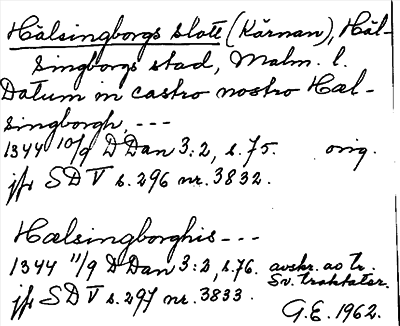 Hälsingborgs slott (Kärnan), Häl-
singborgs stad, Malm. l.
Datum in castro nostro Hæl-
singborgh, ---
1344 10/9 D Dan 3:2, s. 75. orig.
jfr SD V s. 296 nr. 3832.
Hælsingborghis ---
1344 11/9 D Dan 3:2, s. 76. avskr. av tr.
Sv. traktater.
jfr SD V s. 297 nr. 3833.
G.E. 1962.